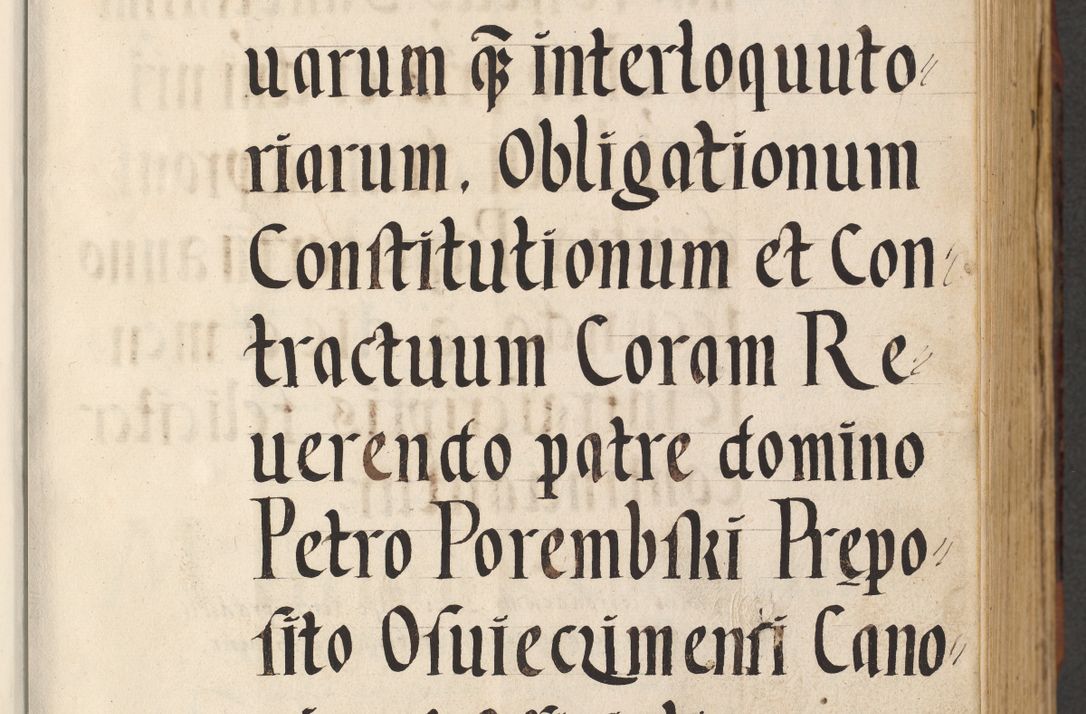 uarum qꝫ interloquuto〃
riarum. Obligationum
Conſtitutionum et Con〃
tractuum Coram Re〃
uerendo patre domino
Petro Porembſki Prępo〃
ſito Oſuieczimenſi Cano〃